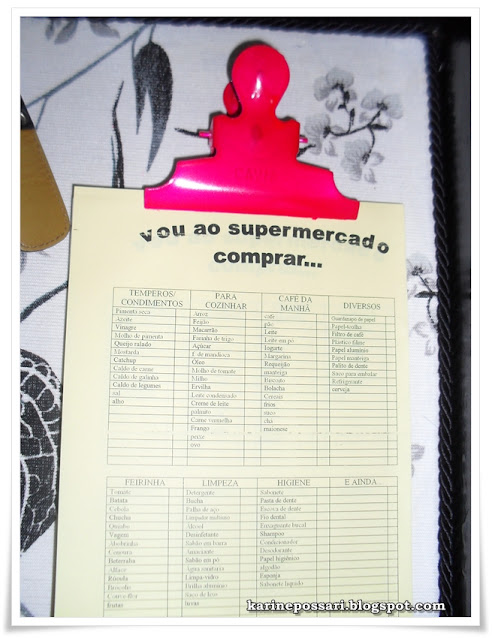 vou ao supermercado
comprar...
TEMPEROS/ PARA CAFÉ DA DIVERSOS
CONDIMENTOS COZINHAR MANHÃ
Pimenta seca Arroz café Guardanapo de papel
Azeite Feijão pão Papel-toalha
Vinagre Macarrão Leite Filtro de café
Molho de pimenta Farinha de trigo Leite em pó Plástico filme
Queijo ralado Açúcar Iogurte Papel alumínio
Mostarda F. de mandioca Margarina Papel manteiga
Catchup Óleo Requeijão Palito de dente
Caldo de carne Molho de tomate manteiga Saco para embalar
Caldo de galinha Milho Biscoito Refrigerante
Caldo de legumes Ervilha Bolacha cerveja
sal Leite condensado Cereais
alho Creme de leite frios
palmito suco
Carne vermelha chá
Frango maionese
peixe
ovo
FEIRINHA LIMPEZA HIGIENE E AINDA...
Tomate Detergente Sabonete
Batata Bucha Pasta de dente
Cebola Palha de aço Escova de dente
Chuchu Limpador multiuso Fio dental
Quiabo Álcool Enxaguante bucal
Vagem Desinfetante Shampoo
Abobrinha Sabão em barra Condicionador
Cenoura Amaciante Desodorante
Beterraba Sabão em pó Papel higiênico
Alface Água sanitária algodão
Rúcula Limpa-vidro Esponja
Brócolis Brilha alumínio Sabonete líquido
Couve-flor Saco de lixo
frutas luvas
karinepossari.blogspot.com